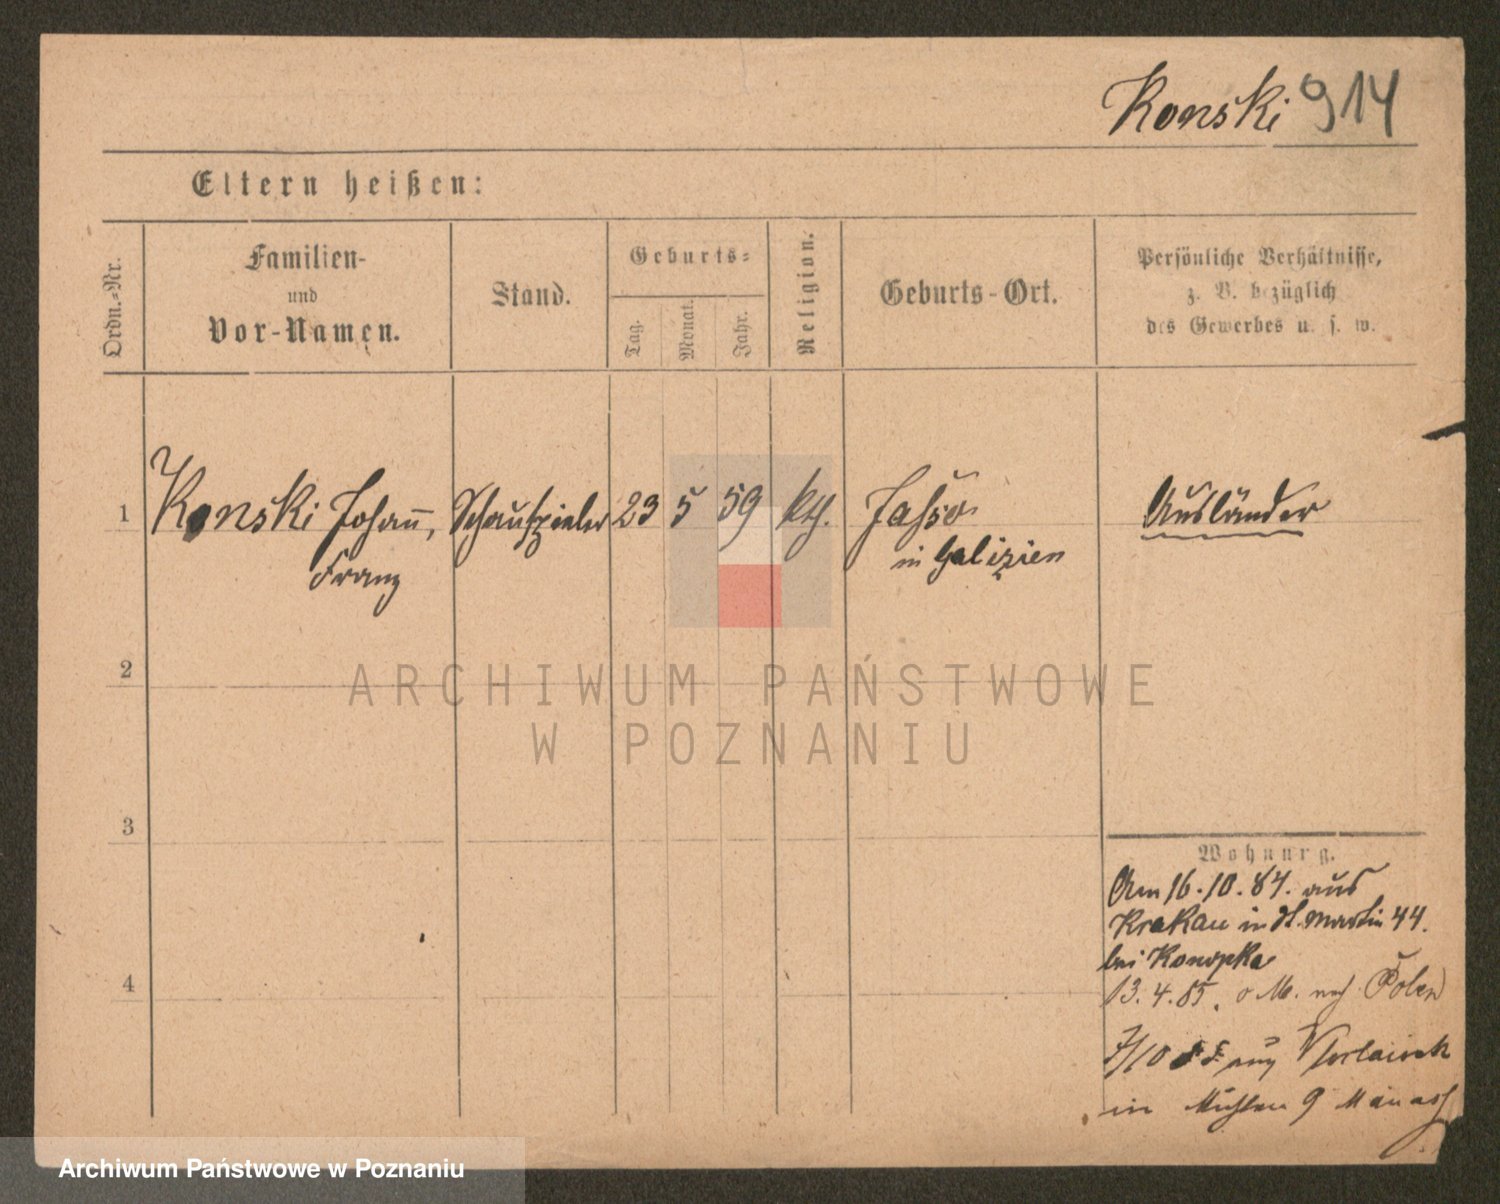 Konski 914
Eltern heißen:
Ordn.-Nr.
Familien-
und
Vor-Namen.
Stand.
Geburts-
Tag.
Monat.
Jahr.
Religion.
Geburts-Ort.
Persönliche Verhältnisse,
z. B. bezüglich
des Gewerbes u. s. w.
1 Konski Johann, Schauspieler 23 5 59 kth. Ausländer
Franz in Galizien
2
ARCHIWUM PAŃSTWOWE
W POZNANIU
3
Wohnung.
Am 16.10.84. aus
Krakau in St. Martin 44.
bei Konopka
4
13.4.85. o M. nach Polen
7/10
in Mühlen 9
Archiwum Państwowe w Poznaniu